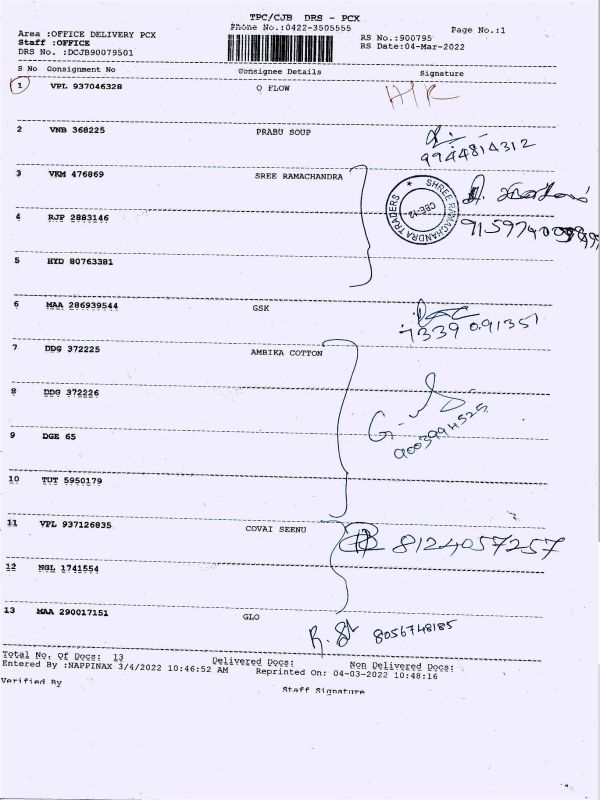 TPC/CJB DRS - PCX
Phone No.:0422-3505555
Area :OFFICE DELIVERY PCX
Page No.:1
RS No.:900795
Staff :OFFICE
RS Date:04-Mar-2022
DRS No. :DCJB90079501
S No Consignment No Consignee Details Signature
1 VPL 937046328 O FLOW
2 VNB 368225 PRABU SOUP
9944814312
3 VKM 476869 SREE RAMACHANDRA
SHREE RAMACHANDRA TRADERS
CBE-12
4 RJP 2883146
5 HYD 80763381
6 MAA 286939544 GSK
7339091351
7 DDG 372225 AMBIKA COTTON
8 DDG 372226
9 DGE 65
10 TUT 5950179
11 VPL 937126835 COVAI SEENU
8124057257
12 NGL 1741554
13 MAA 290017151 GLO
8056748185
Total No. Of Docs: 13 Delivered Docs: Non Delivered Docs:
Entered By :NAPPINAX 3/4/2022 10:46:52 AM Reprinted On: 04-03-2022 10:48:16
Verified By
Staff Signature